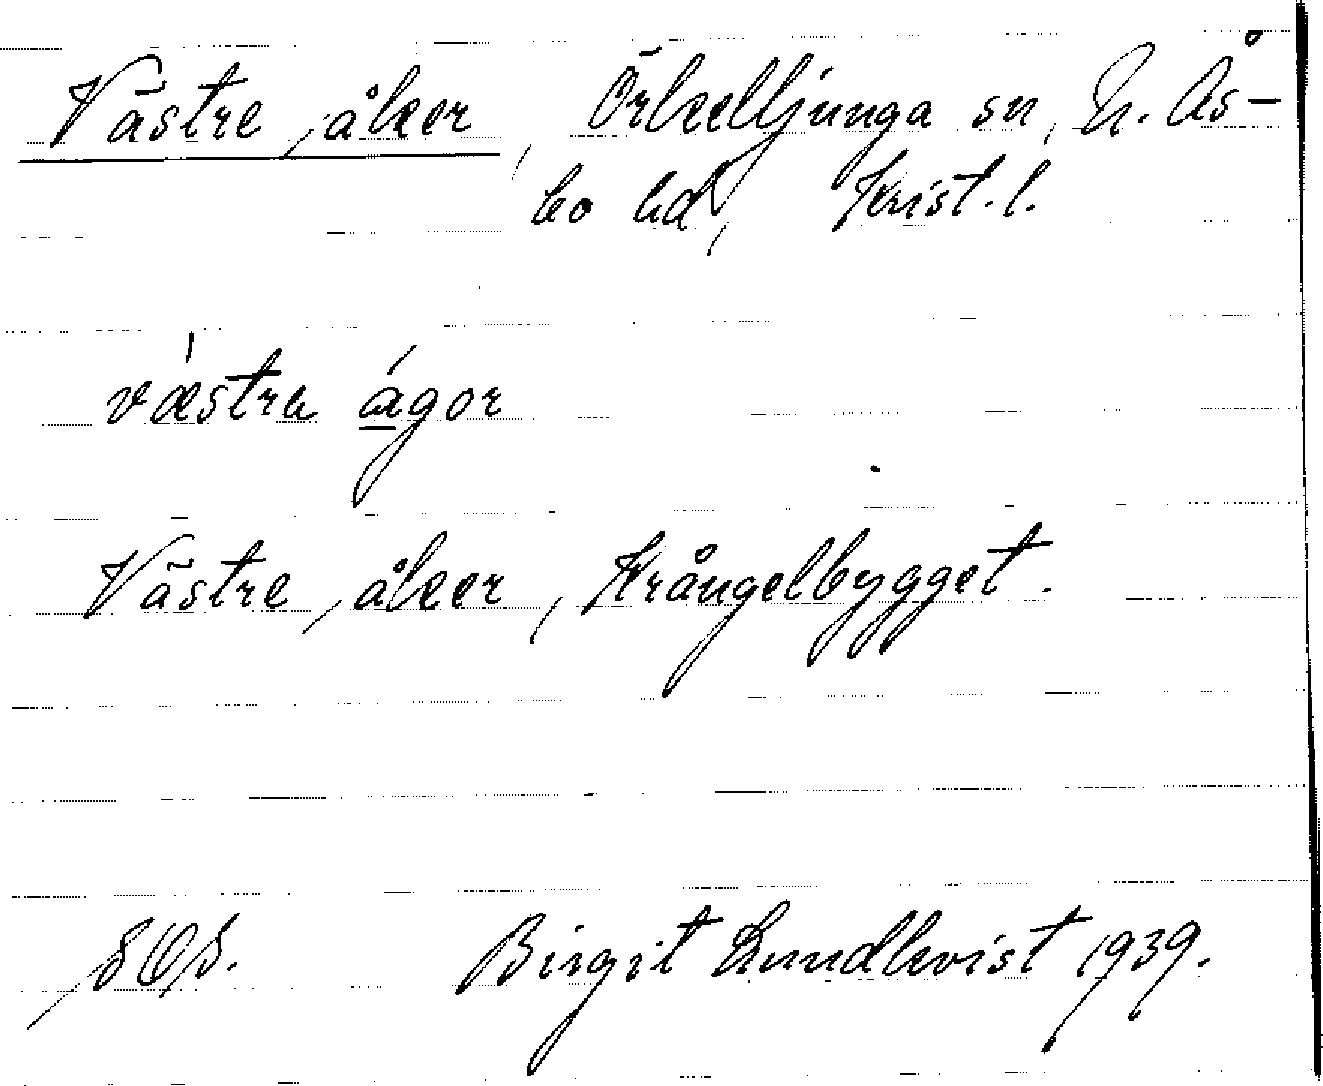 Västre åker, Örkelljunga sn, N. Ås-
bo hd, Krist. l.
vǽstra á̱gor
Västre åker, Krångelbygget.
Birgit Lundkvist 1939.